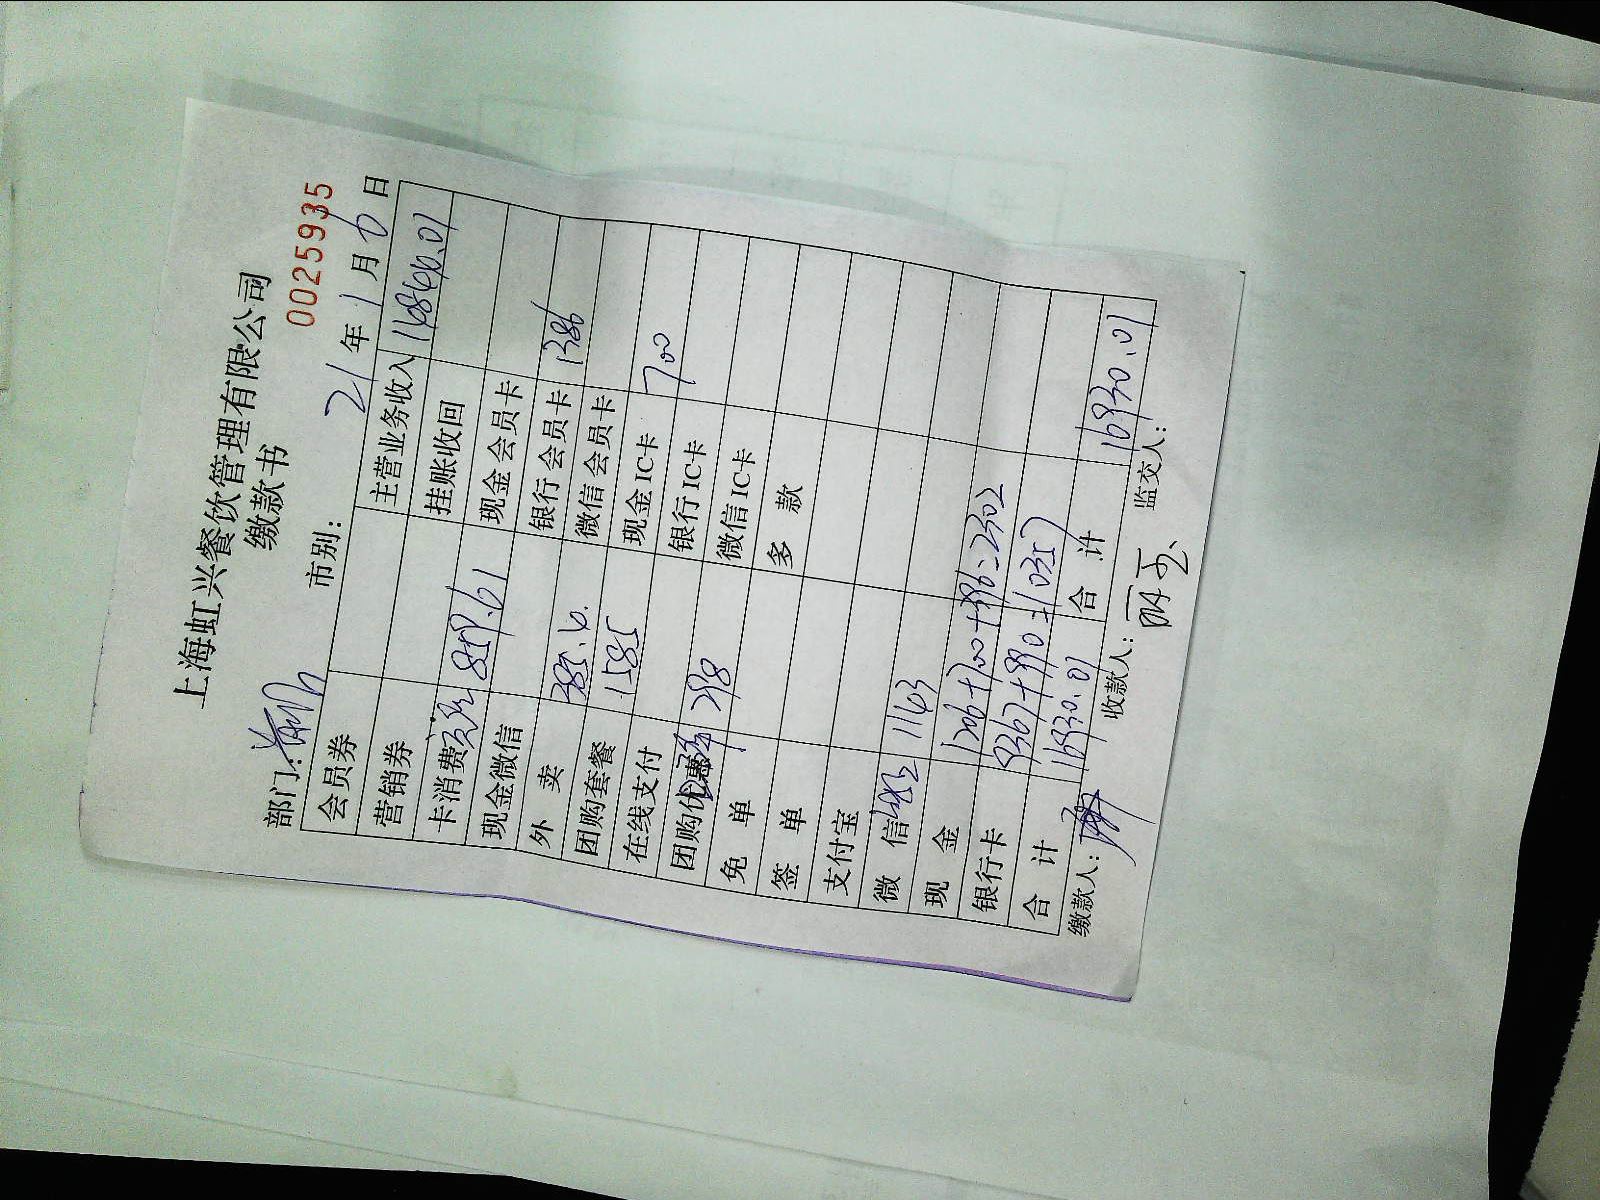 上海虹兴餐饮管理有限公司
缴款书
0025935
部门: 市别: 21年1月6日
会员券 主营业务收入 14844.01
营销券 挂账收回
卡消费 859.61 现金会员卡
现金微信 银行会员卡 1386
外卖 微信会员卡
团购套餐 1585 现金IC卡 700
在线支付 银行IC卡
团购优惠 298 微信IC卡
免单 多款
签单
支付宝
微信 1143
现金 1206+700+396=2302
银行卡 9367+990=10357
合计 16930.01 合计 16930.01
缴款人: 收款人: 监交人: